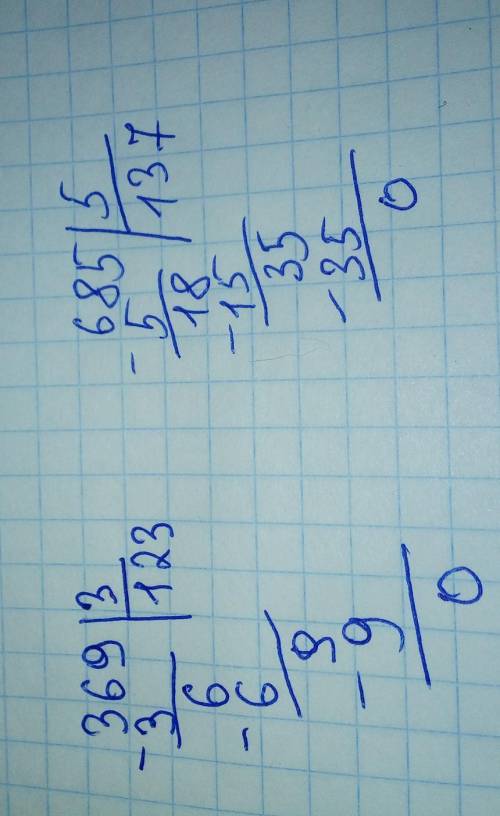 369 3
-3 123
6
-6
9
-9
0
685 5
-5 137
18
-15
35
-35
0